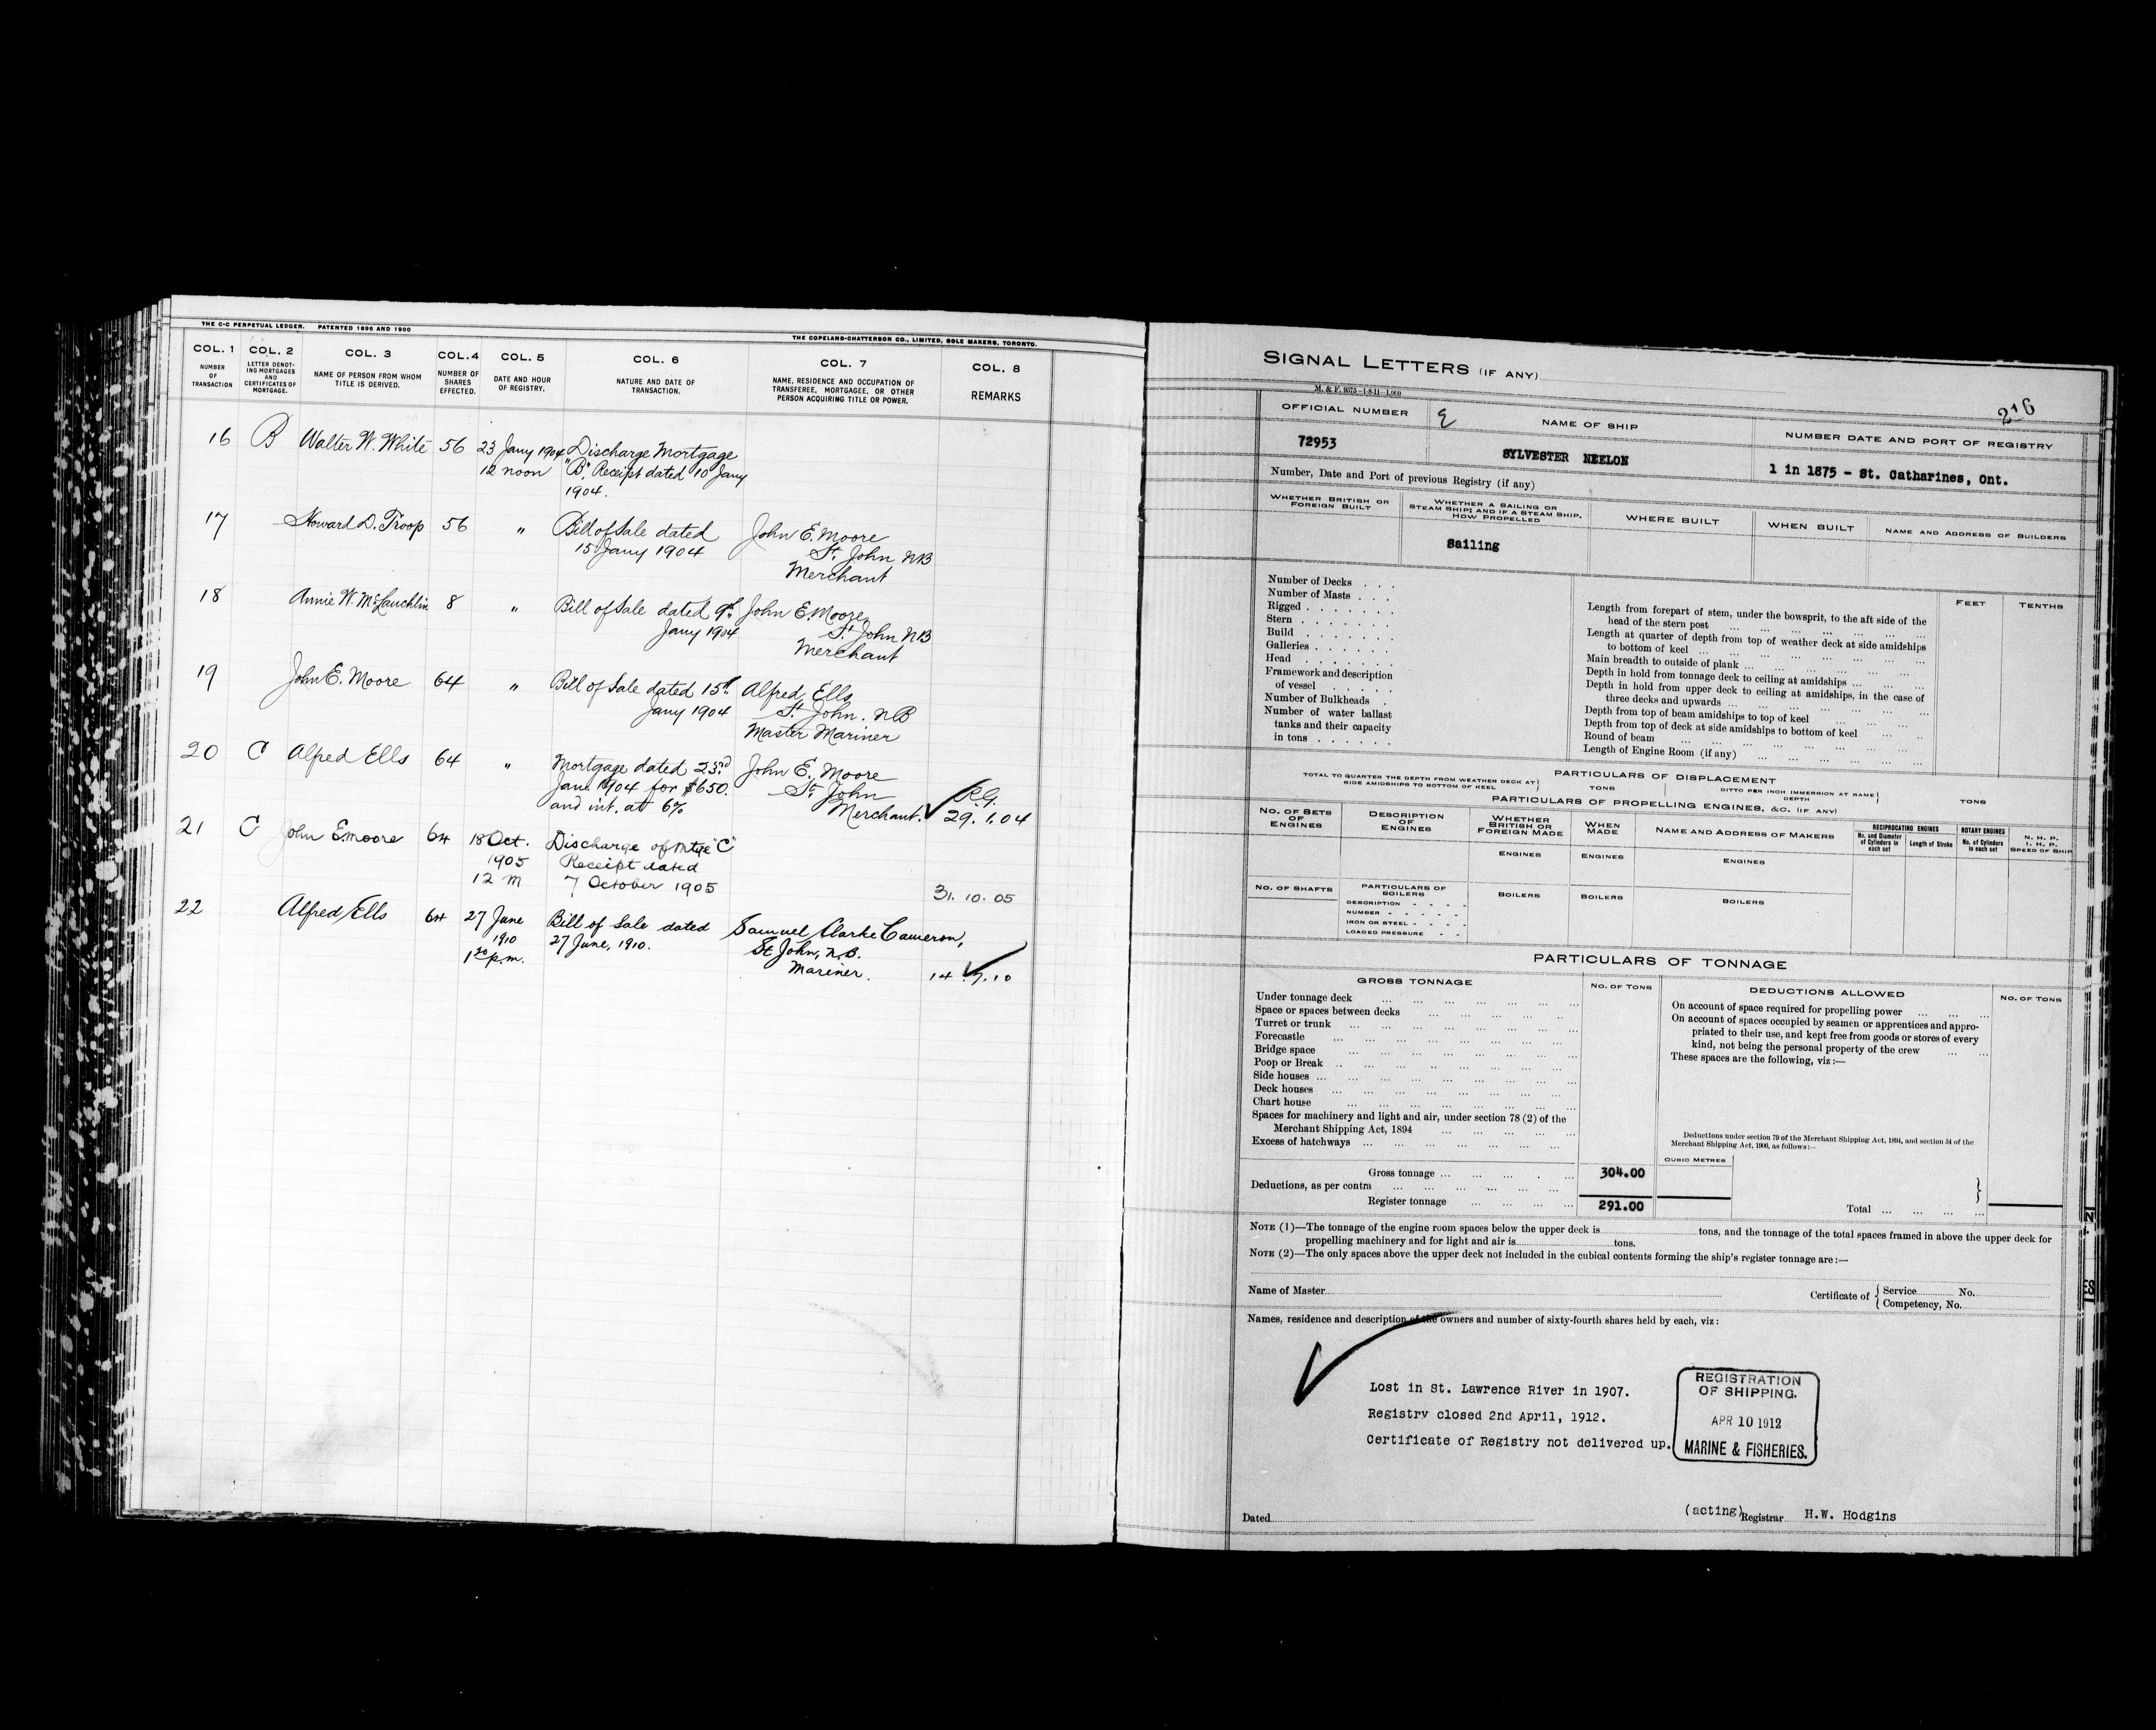 THE C-C PERPETUAL LEDGER. PATENTED 1898 AND 1900
THE COPELAND-CHATTERSON CO., LIMITED, SOLE MAKERS, TORONTO.
COL. 1 COL. 2 COL. 3 COL. 4 COL. 5 COL. 6 COL. 7 COL. 8
NUMBER OF TRANSACTION
LETTER DENOTING MORTGAGES AND CERTIFICATES OF MORTGAGE.
NAME OF PERSON FROM WHOM TITLE IS DERIVED.
NUMBER OF SHARES EFFECTED.
DATE AND HOUR OF REGISTRY.
NATURE AND DATE OF TRANSACTION.
NAME, RESIDENCE AND OCCUPATION OF TRANSFEREE, MORTGAGEE, OR OTHER PERSON ACQUIRING TITLE OR POWER.
REMARKS
16 B Walter W. White 56 23 Jany 1904 Discharge Mortgage
12 noon "B". Receipt dated 10 Jany
1904.
17 Howard D. Troop 56 " Bill of Sale dated John E. Moore
15 Jany 1904 St. John NB
Merchant
18 Annie W. McLauchlin 8 " Bill of Sale dated 9th John E. Moore
Jany 1904 St. John NB
Merchant
19 John E. Moore 64 " Bill of Sale dated 15th Alfred Ells
Jany 1904 St. John. NB
Master Mariner
20 C Alfred Ells 64 " Mortgage dated 23rd John E. Moore
Jany 1904 for $650. St. John R.G.
and int. at 6% Merchant. 29.1.04
21 C John E. Moore 64 18 Oct. Discharge of Mtge "C"
1905 Receipt dated
12 M 7 October 1905 31.10.05
22 Alfred Ells 64 27 June Bill of Sale dated Samuel Clarke Cameron,
1910 27 June, 1910. St John, N.B.
1 30 p.m. Mariner. 14.7.10
SIGNAL LETTERS (IF ANY)
M. & F. 9575-1-8-11-1,000
216
OFFICIAL NUMBER NAME OF SHIP NUMBER DATE AND PORT OF REGISTRY
72953 SYLVESTER NEELON 1 in 1875 - St. Catharines, Ont.
Number, Date and Port of previous Registry (if any)
WHETHER BRITISH OR FOREIGN BUILT
WHETHER A SAILING OR STEAM SHIP; AND IF A STEAM SHIP, HOW PROPELLED
WHERE BUILT WHEN BUILT NAME AND ADDRESS OF BUILDERS
Sailing
Number of Decks
Number of Masts
Rigged
Stern
Build
Galleries
Head
Framework and description
of vessel
Number of Bulkheads
Number of water ballast
tanks and their capacity
in tons
FEET TENTHS
Length from forepart of stem, under the bowsprit, to the aft side of the
head of the stern post
Length at quarter of depth from top of weather deck at side amidships
to bottom of keel
Main breadth to outside of plank
Depth in hold from tonnage deck to ceiling at amidships
Depth in hold from upper deck to ceiling at amidships, in the case of
three decks and upwards
Depth from top of beam amidships to top of keel
Depth from top of deck at side amidships to bottom of keel
Round of beam
Length of Engine Room (if any)
PARTICULARS OF DISPLACEMENT
TOTAL TO QUARTER THE DEPTH FROM WEATHER DECK AT SIDE AMIDSHIPS TO BOTTOM OF KEEL TONS DITTO PER INCH IMMERSION AT SAME DEPTH TONS
PARTICULARS OF PROPELLING ENGINES, &C. (IF ANY)
NO. OF SETS OF ENGINES
DESCRIPTION OF ENGINES
WHETHER BRITISH OR FOREIGN MADE
WHEN MADE
NAME AND ADDRESS OF MAKERS
RECIPROCATING ENGINES
No. and Diameter of Cylinders in each set
Length of Stroke
ROTARY ENGINES
No. of Cylinders in each set
N. H. P.
I. H. P.
SPEED OF SHIP
ENGINES ENGINES ENGINES
NO. OF SHAFTS PARTICULARS OF BOILERS BOILERS BOILERS BOILERS
DESCRIPTION
NUMBER
IRON OR STEEL
LOADED PRESSURE
PARTICULARS OF TONNAGE
GROSS TONNAGE NO. OF TONS DEDUCTIONS ALLOWED NO. OF TONS
Under tonnage deck
Space or spaces between decks
Turret or trunk
Forecastle
Bridge space
Poop or Break
Side houses
Deck houses
Chart house
Spaces for machinery and light and air, under section 78 (2) of the
Merchant Shipping Act, 1894
Excess of hatchways
On account of space required for propelling power
On account of spaces occupied by seamen or apprentices and appro-
priated to their use, and kept free from goods or stores of every
kind, not being the personal property of the crew
These spaces are the following, viz:—
Deductions under section 79 of the Merchant Shipping Act, 1894, and section 54 of the
Merchant Shipping Act, 1906, as follows:—
CUBIC METRES
Gross tonnage 304.00
Deductions, as per contra
Register tonnage 291.00
Total
NOTE (1)—The tonnage of the engine room spaces below the upper deck is tons, and the tonnage of the total spaces framed in above the upper deck for
propelling machinery and for light and air is tons.
NOTE (2)—The only spaces above the upper deck not included in the cubical contents forming the ship's register tonnage are:—
Name of Master Certificate of { Service No.
Competency, No.
Names, residence and description of the owners and number of sixty-fourth shares held by each, viz:
Lost in St. Lawrence River in 1907.
Registry closed 2nd April, 1912.
Certificate of Registry not delivered up.
REGISTRATION
OF SHIPPING.
APR 10 1912
MARINE & FISHERIES.
Dated (acting) Registrar H.W. Hodgins